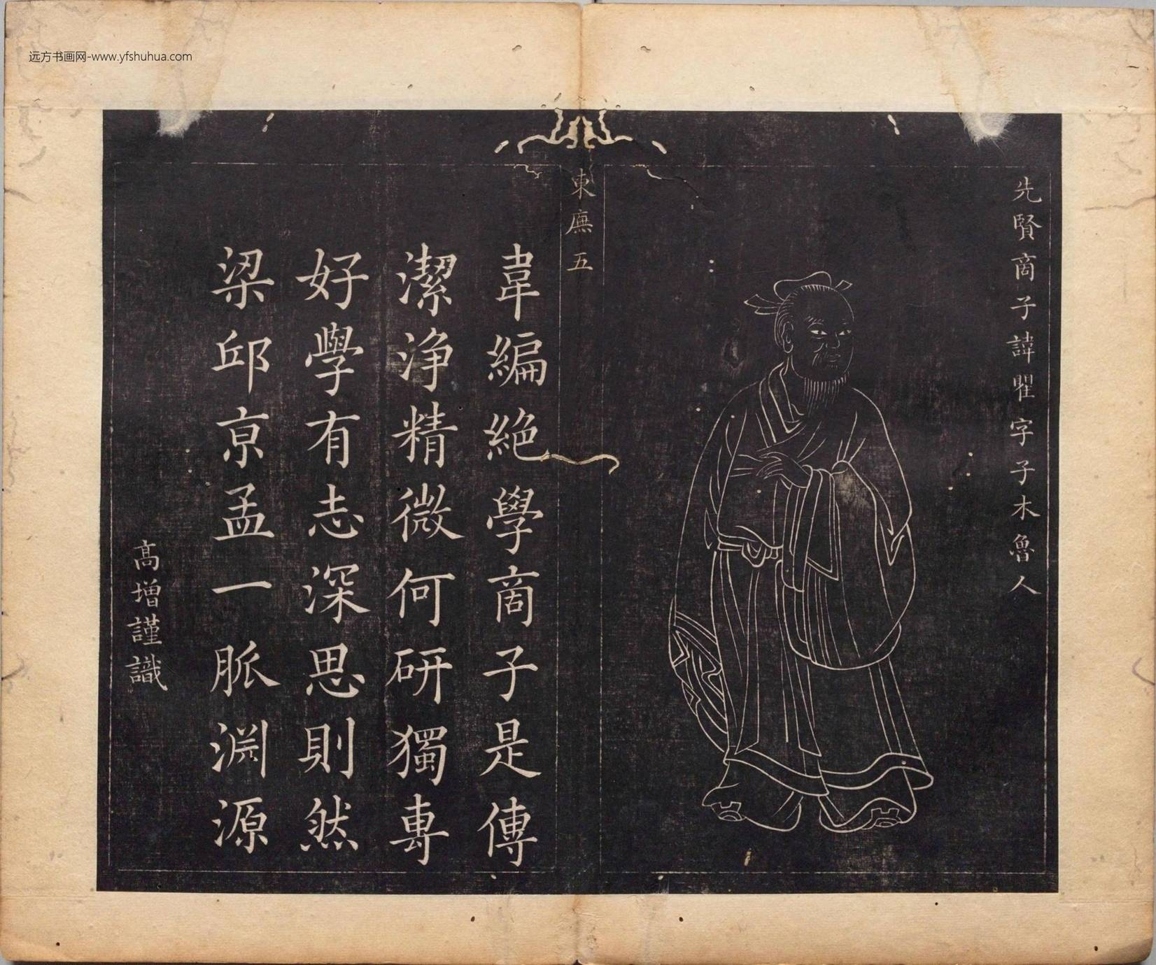 远方书画网-www.yfshuhua.com
先賢商子諱瞿字子木魯人
東廡五
韋編絶學商子是傳
潔浄精微何研獨專
好學有志深思則然
梁邱京孟一脈淵源
高增謹識